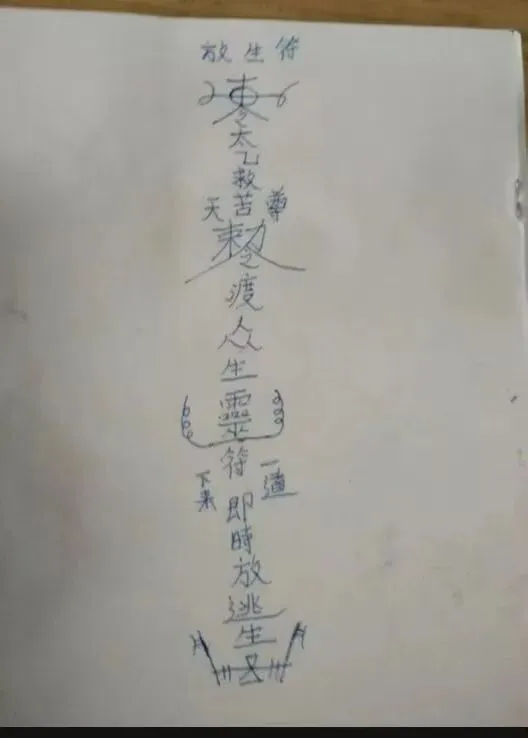 放生符
太乙救苦天尊
勅令
渡众生靈
符一道
下来
即時放逃生